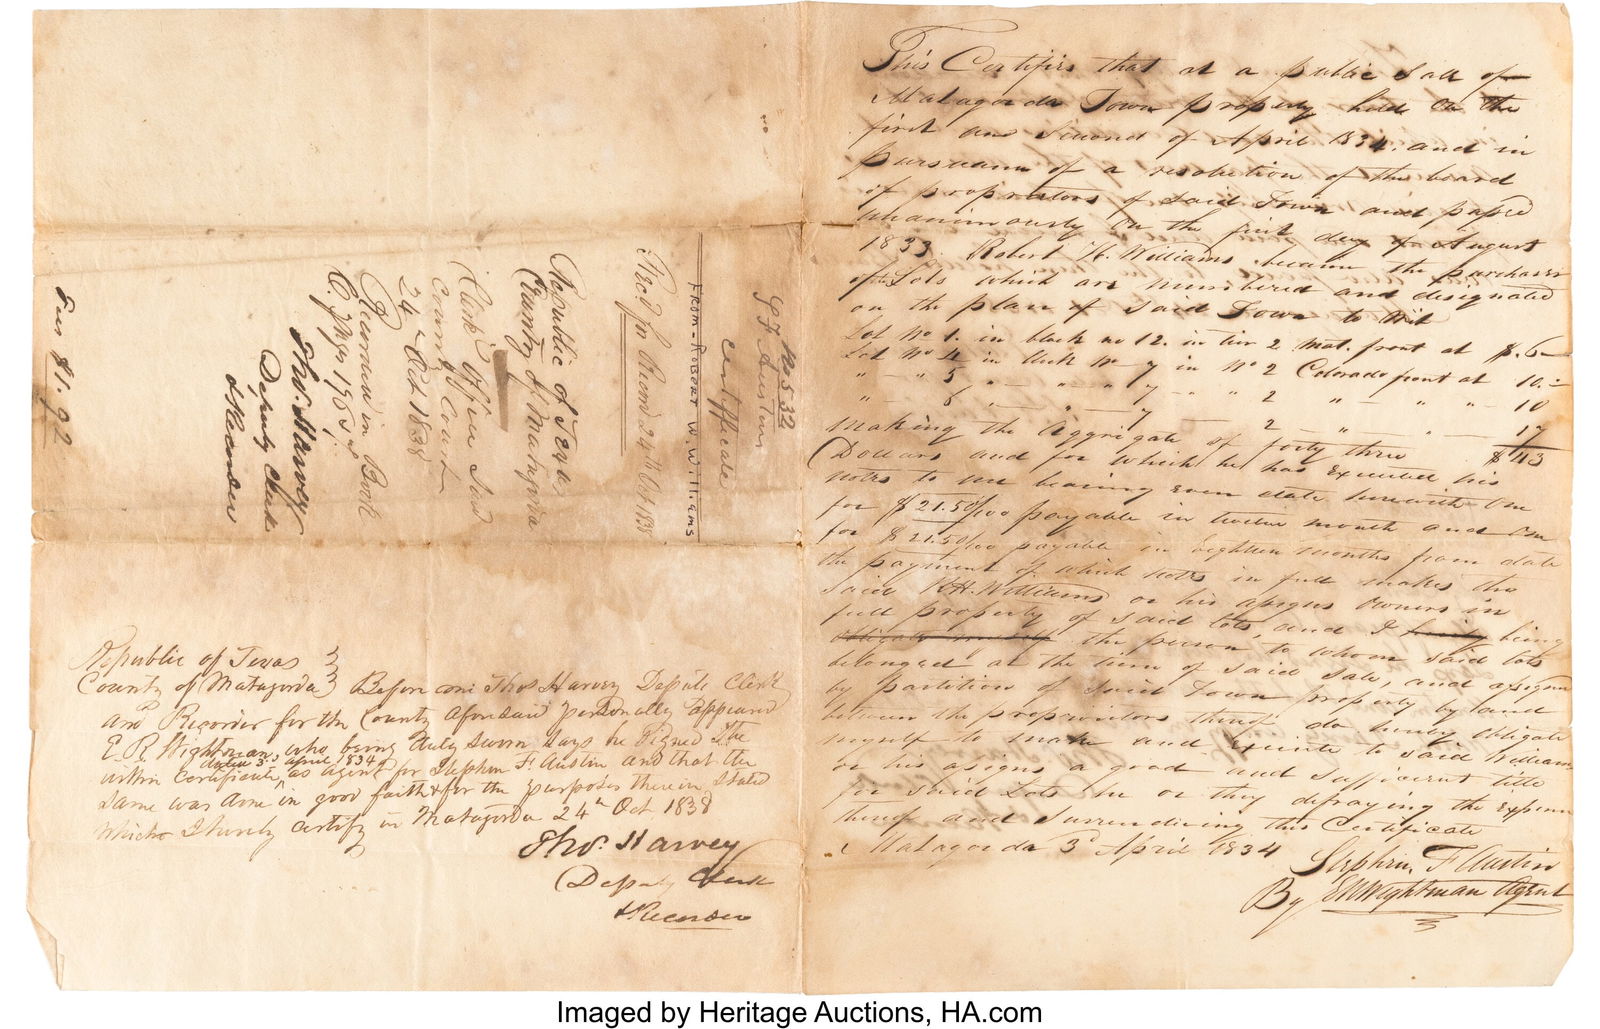 This Certifies that at a public Sale of
Matagorda Town property held on the
first and Second of April 1834. and in
pursuance of a resolution of the board
of proprietors of Said Town and passed
unanimously on the first day of August
1833. Robert H. Williams became the purchaser
of Lots which are numbered and designated
on the plan of Said Town to Wit
Lot No 1. in block no 12. in tier 2 Mat. front at $.6–
Lot No 4 in block No 7 in No 2 Colorado front at 10.–
" – " 5 " – " " 7 – " " 2 " – " " – 10
" – " 8 " – " – 7 – 2 – " – " – 17
making the Aggregate of forty three $43
Dollars and for which he has executed his
notes to me bearing even date herewith One
for $21.50/100 payable in twelve month and One
for $21.50/100 payable in Eighteen months from date
the payment of which notes in full makes the
Said R.H. Williams or his assigns Owners in
full property of Said Lots, and I being
the person to whom Said lots
belonged at the time of Said Sale, and assigned
by partition of Said Town property by and
between the proprietors thereof do hereby obligate
myself to make and execute to Said Williams
or his assigns a good and Sufficient title
for Said Lots he or they defraying the expense
thereof and Surrendering this Certificate
Matagorda 3d April 1834
Stephen F Austin
By E R Wightman Agent
No 532
S F Austin
Certificate
From – Robert W. Williams
Rec'd for Record 24th Oct 1838
Republic of Texas
County of Matagorda
Clerk's Office Said
County Court
24th Oct 1838
Recorded in Book
Tho's. Harvey
Deputy Clerk
& Recorder
Fees $1.92
Republic of Texas
County of Matagorda Before me Thos Harvey Deputy Clerk
and Recorder for the County aforesaid personally appeared
E R Wightman, who being duly sworn says he signed the
dated 3d april 1834
within Certificate, as agent for Stephen F. Austin and that the
same was done in good faith & for the purposes therein stated
which I hereby certify in Matagorda 24th Oct 1838
Tho's. Harvey
Deputy Clerk
& Recorder
Imaged by Heritage Auctions, HA.com